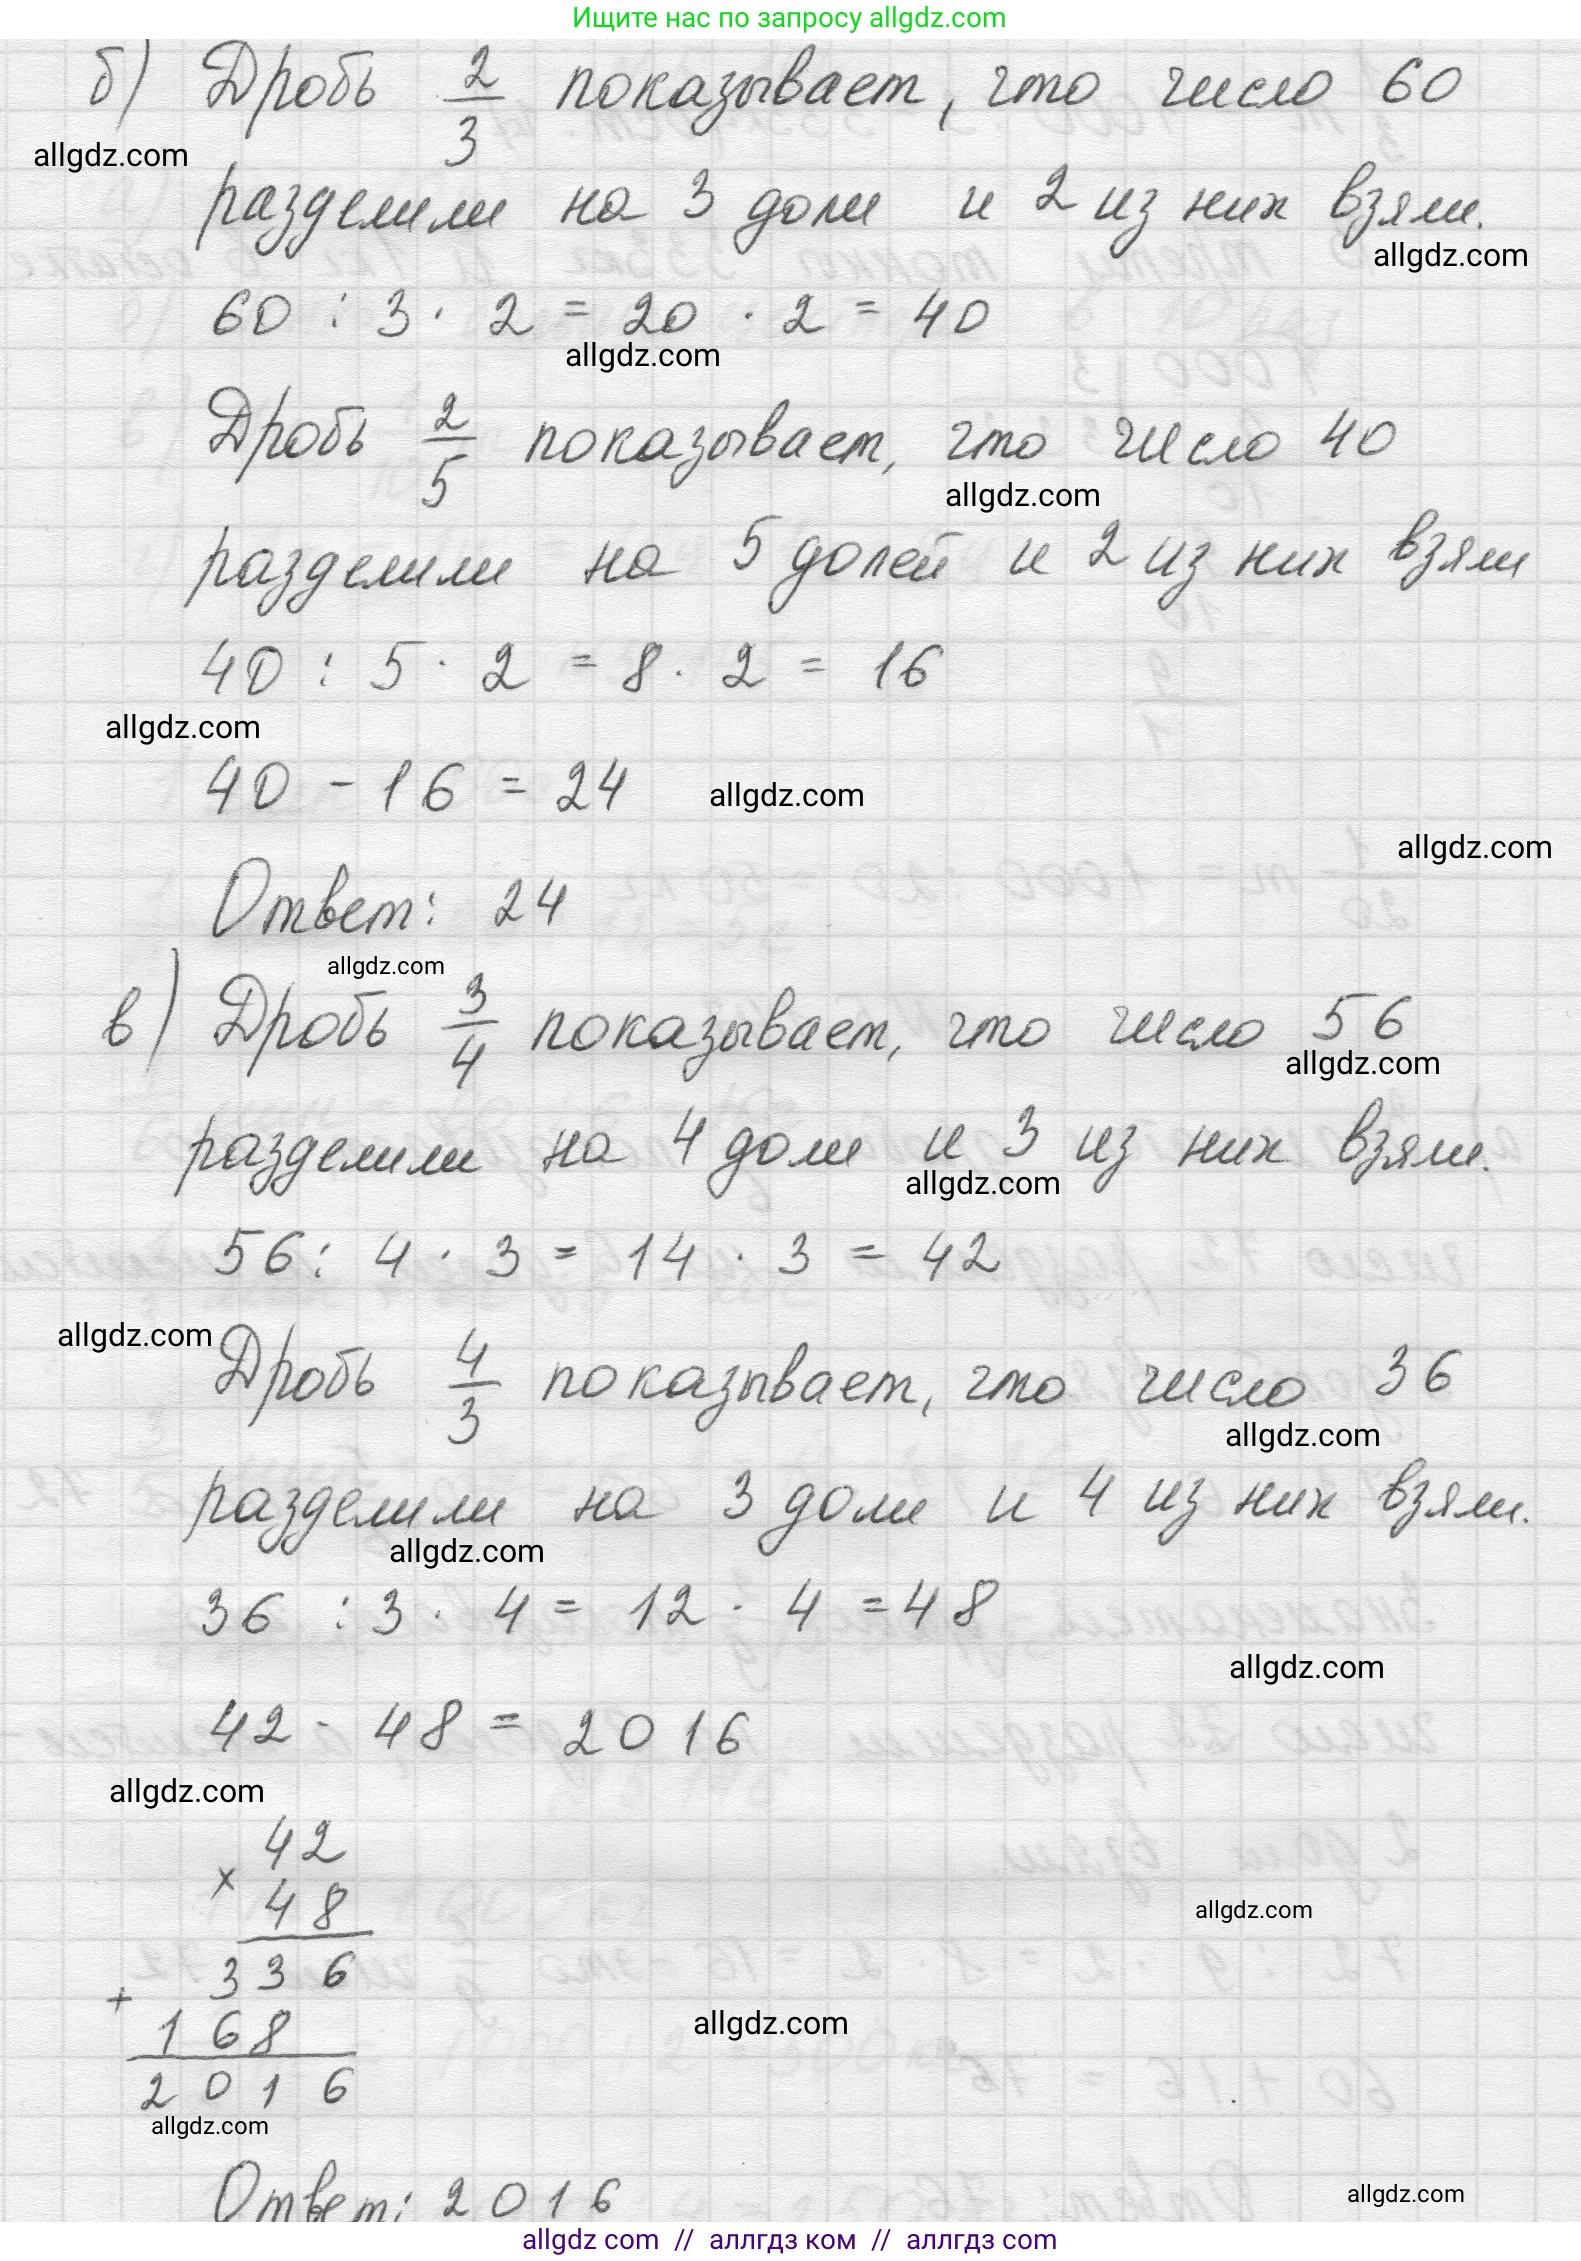 Ищите нас по запросу allgdz.com
б) Дробь 2/3 показывает, что число 60
allgdz.com
разделили на 3 доли и 2 из них взяли.
allgdz.com
60 : 3 · 2 = 20 · 2 = 40
allgdz.com
Дробь 2/5 показывает, что число 40
allgdz.com
разделили на 5 долей и 2 из них взяли
40 : 5 · 2 = 8 · 2 = 16
allgdz.com
40 - 16 = 24
allgdz.com
allgdz.com
Ответ: 24
allgdz.com
в) Дробь 3/4 показывает, что число 56
allgdz.com
разделили на 4 доли и 3 из них взяли.
allgdz.com
56 : 4 · 3 = 14 · 3 = 42
allgdz.com
Дробь 4/3 показывает, что число 36
allgdz.com
разделили на 3 доли и 4 из них взяли.
allgdz.com
36 : 3 · 4 = 12 · 4 = 48
allgdz.com
42 · 48 = 2016
allgdz.com
42
×
48
allgdz.com
336
+
168
allgdz.com
2016
allgdz.com
Ответ: 2016
allgdz.com
allgdz com // аллгдз ком // аллгдз com